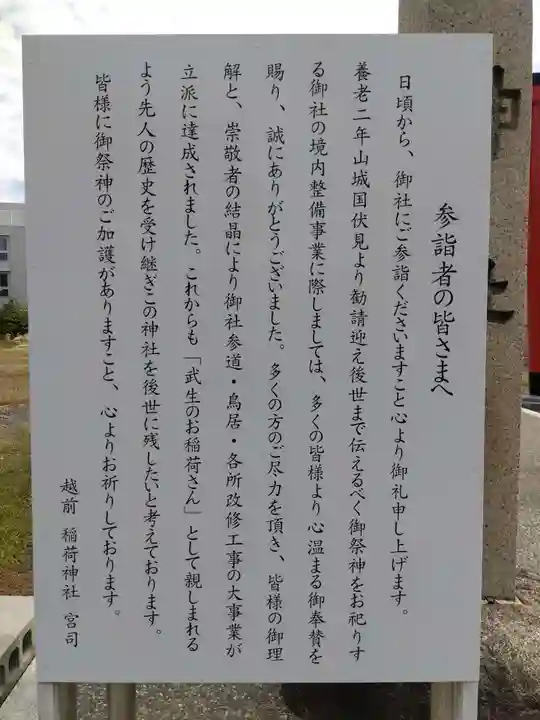 参詣者の皆さまへ
日頃から、御社にご参詣くださいますこと心より御礼申し上げます。
養老二年山城国伏見より勧請迎え後世まで伝えるべく御祭神をお祀りす
る御社の境内整備事業に際しましては、多くの皆様より心温まる御奉賛を
賜り、誠にありがとうございました。多くの方のご尽力を頂き、皆様の御理
解と、崇敬者の結晶により御社参道・鳥居・各所改修工事の大事業が
立派に達成されました。これからも「武生のお稲荷さん」として親しまれる
よう先人の歴史を受け継ぎこの神社を後世に残したいと考えております。
皆様に御祭神のご加護がありますこと、心よりお祈りしております。
越前 稲荷神社 宮司